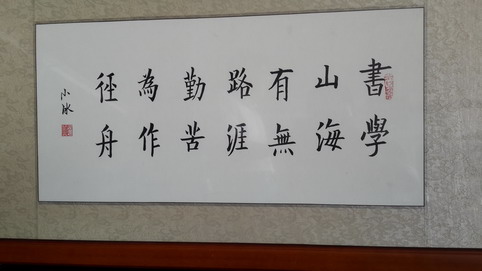 書山有路勤為徑
學海無涯苦作舟
小冰